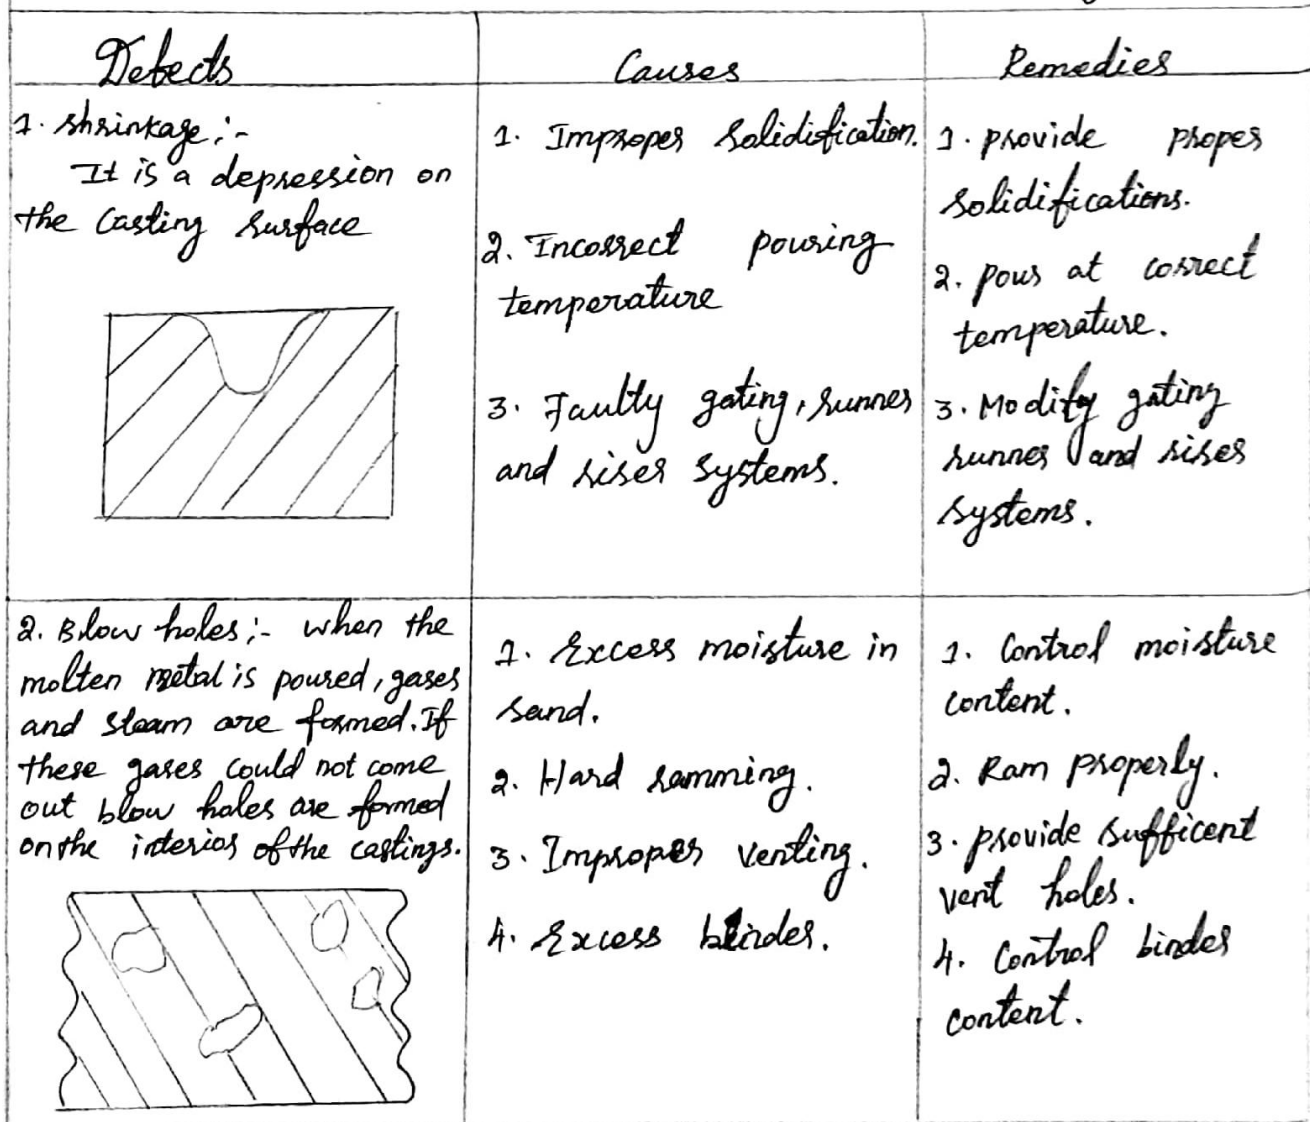 Defects
Causes
Remedies
1. shrinkage :-
It is a depression on
the Casting surface
1. Improper Solidification.
2. Incorrect pouring
temperature
3. Faulty gating, runner
and riser systems.
1. provide proper
solidifications.
2. pour at correct
temperature.
3. Modify gating
runner and riser
systems.
2. Blow holes :- when the
molten metal is poured, gases
and steam are formed. If
these gases could not come
out blow holes are formed
on the interior of the castings.
1. Excess moisture in
sand.
2. Hard ramming.
3. Improper venting.
4. Excess binder.
1. Control moisture
content.
2. Ram properly.
3. provide sufficent
vent holes.
4. Control binder
content.